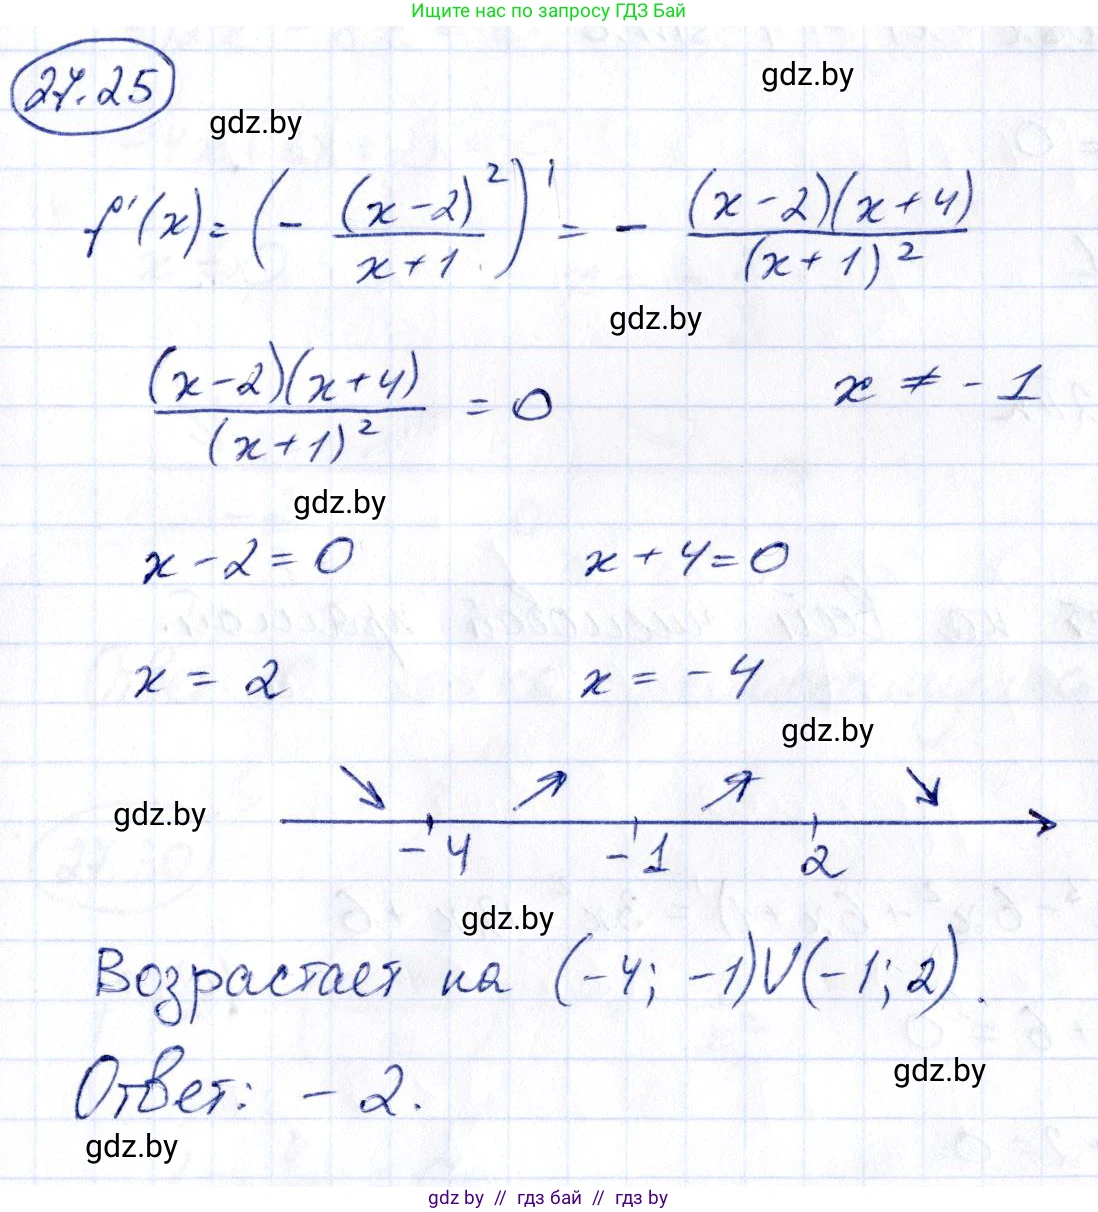 Ищите нас по запросу ГДЗ Бай
gdz.by
27.25
gdz.by
f'(x) = (- (x-2)²/(x+1))' = - (x-2)(x+4)/(x+1)²
gdz.by
(x-2)(x+4)/(x+1)² = 0 x ≠ -1
gdz.by
x - 2 = 0 x + 4 = 0
x = 2 x = -4
gdz.by
gdz.by
-4 -1 2
gdz.by
Возрастает на (-4; -1)∪(-1; 2).
gdz.by
Ответ: -2.
gdz.by
gdz by // гдз бай // гдз by